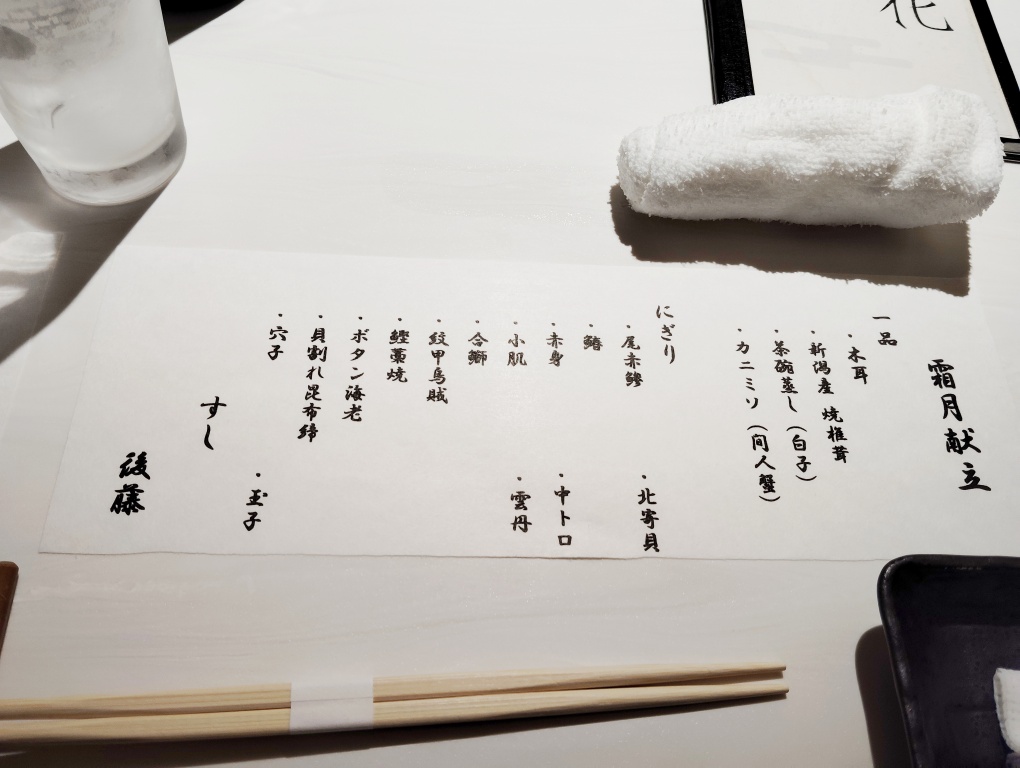 花
霜月献立
一品
・木耳
・新潟産 焼椎茸
・茶碗蒸し(白子)
・カニミソ(間人蟹)
にぎり
・尾赤鰺 ・北寄貝
・鰆
・赤身 ・中トロ
・小肌 ・雲丹
・合鰤
・紋甲烏賊
・鰹藁焼
・ボタン海老
・貝割れ昆布締
・穴子 ・玉子
すし
後藤